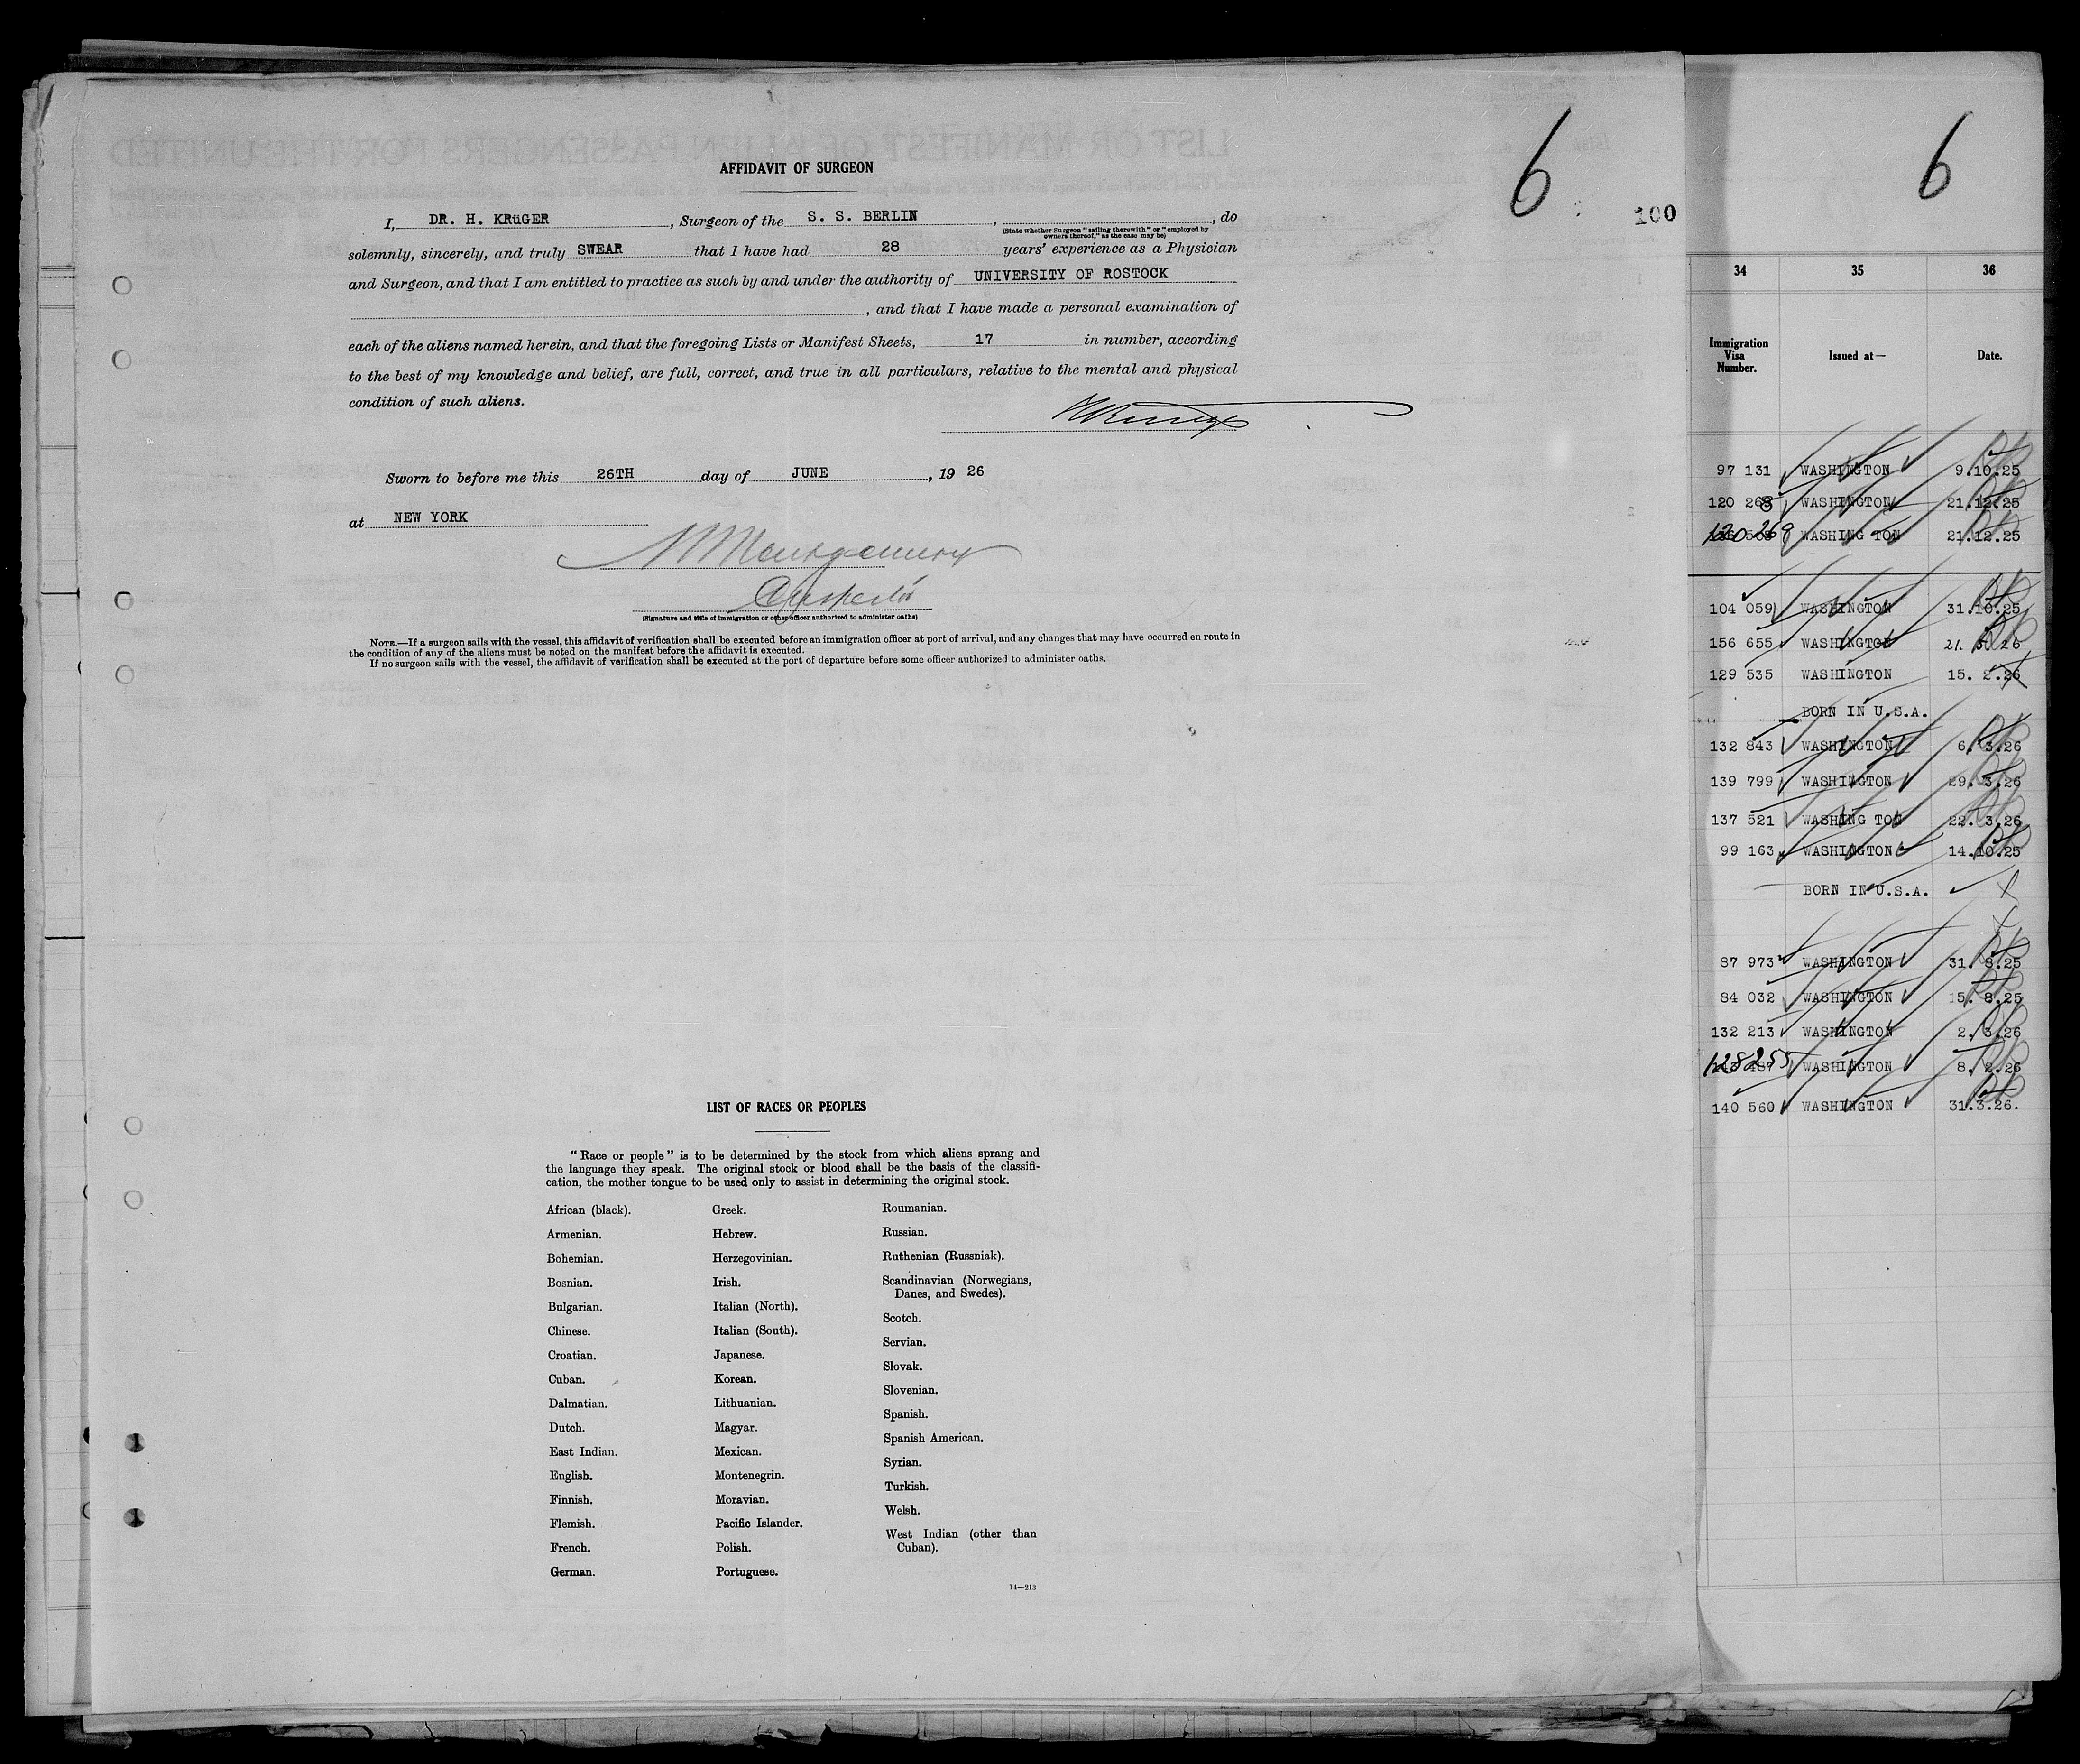 6
100
AFFIDAVIT OF SURGEON
I, DR. H. KRüGER, Surgeon of the S. S. BERLIN, , do
(State whether Surgeon "sailing therewith" or "employed by owners thereof," as the case may be)
solemnly, sincerely, and truly SWEAR that I have had 28 years' experience as a Physician
and Surgeon, and that I am entitled to practice as such by and under the authority of UNIVERSITY OF ROSTOCK
, and that I have made a personal examination of
each of the aliens named herein, and that the foregoing Lists or Manifest Sheets, 17 in number, according
to the best of my knowledge and belief, are full, correct, and true in all particulars, relative to the mental and physical
condition of such aliens.
Sworn to before me this 26TH day of JUNE, 19 26
at NEW YORK
Montgomery
(Signature and title of immigration or other officer authorized to administer oaths)
NOTE.—If a surgeon sails with the vessel, this affidavit of verification shall be executed before an immigration officer at port of arrival, and any changes that may have occurred en route in
the condition of any of the aliens must be noted on the manifest before the affidavit is executed.
If no surgeon sails with the vessel, the affidavit of verification shall be executed at the port of departure before some officer authorized to administer oaths.
LIST OF RACES OR PEOPLES
"Race or people" is to be determined by the stock from which aliens sprang and
the language they speak. The original stock or blood shall be the basis of the classifi-
cation, the mother tongue to be used only to assist in determining the original stock.
African (black).
Armenian.
Bohemian.
Bosnian.
Bulgarian.
Chinese.
Croatian.
Cuban.
Dalmatian.
Dutch.
East Indian.
English.
Finnish.
Flemish.
French.
German.
Greek.
Hebrew.
Herzegovinian.
Irish.
Italian (North).
Italian (South).
Japanese.
Korean.
Lithuanian.
Magyar.
Mexican.
Montenegrin.
Moravian.
Pacific Islander.
Polish.
Portuguese.
Roumanian.
Russian.
Ruthenian (Russniak).
Scandinavian (Norwegians,
Danes, and Swedes).
Scotch.
Servian.
Slovak.
Slovenian.
Spanish.
Spanish American.
Syrian.
Turkish.
Welsh.
West Indian (other than
Cuban).
14—213
6
34 35 36
Immigration Visa Number. Issued at— Date.
97 131 WASHINGTON 9.10.25
120 268 WASHINGTON 21.12.25
120 269 WASHING TON 21.12.25
104 059 WASHINGTON 31.10.25
156 655 WASHINGTON 21. 5.26
129 535 WASHINGTON 15. 2.26
BORN IN U.S.A.
132 843 WASHINGTON 6. 3.26
139 799 WASHINGTON 29. 3.26
137 521 WASHING TON 22. 3.26
99 163 WASHINGTON 14.10.25
BORN IN U.S.A.
87 973 WASHINGTON 31. 8.25
84 032 WASHINGTON 15. 8.25
132 213 WASHINGTON 2. 3.26
128255 WASHINGTON 8. 2.26
140 560 WASHINGTON 31.3.26.